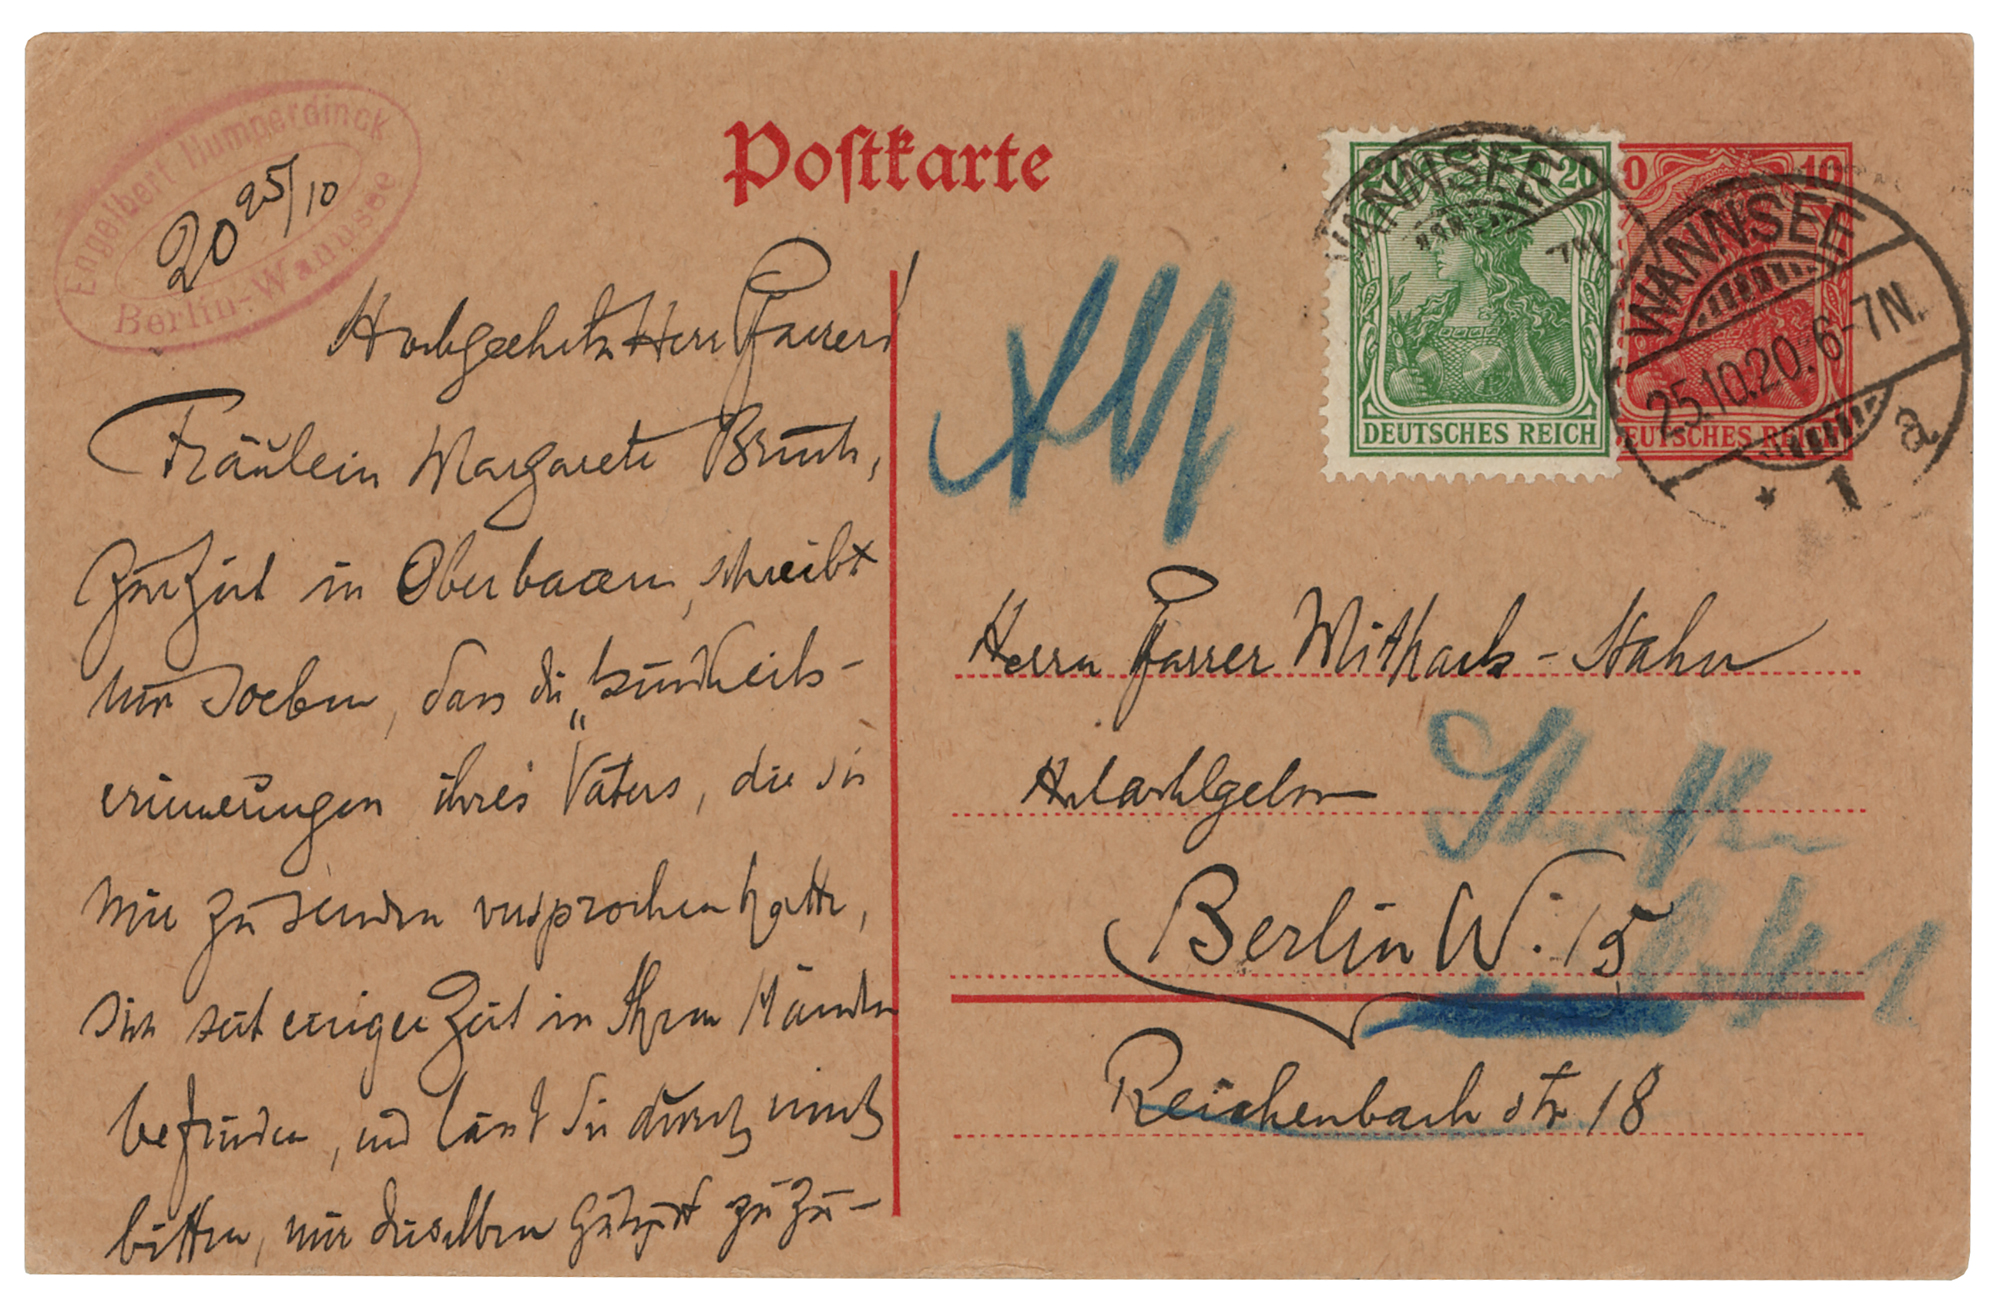 Engelbert Humperdinck
Berlin-Wannsee
20 25/10
Postkarte
20 20
DEUTSCHES REICH
WANNSEE
7N.
10 10
DEUTSCHES REICH
WANNSEE
25.10.20. 6-7N.
* 1 a
Hochgeehrter Herr Pfarrer!
Fräulein Margarete Bruch,
zur Zeit in Oberbaiern, schreibt
mir soeben, dass die „Kindheits-
erinnerungen ihres Vaters, die sie
mir zu senden versprochen hatte,
sich seit einiger Zeit in Ihren Händen
befinden, und lässt Sie durch mich
bitten, mir dieselben gütigst zuzu-
Herrn Pfarrer Nithack-Stahn
Berlin W. 15
Reichenbachstr 18